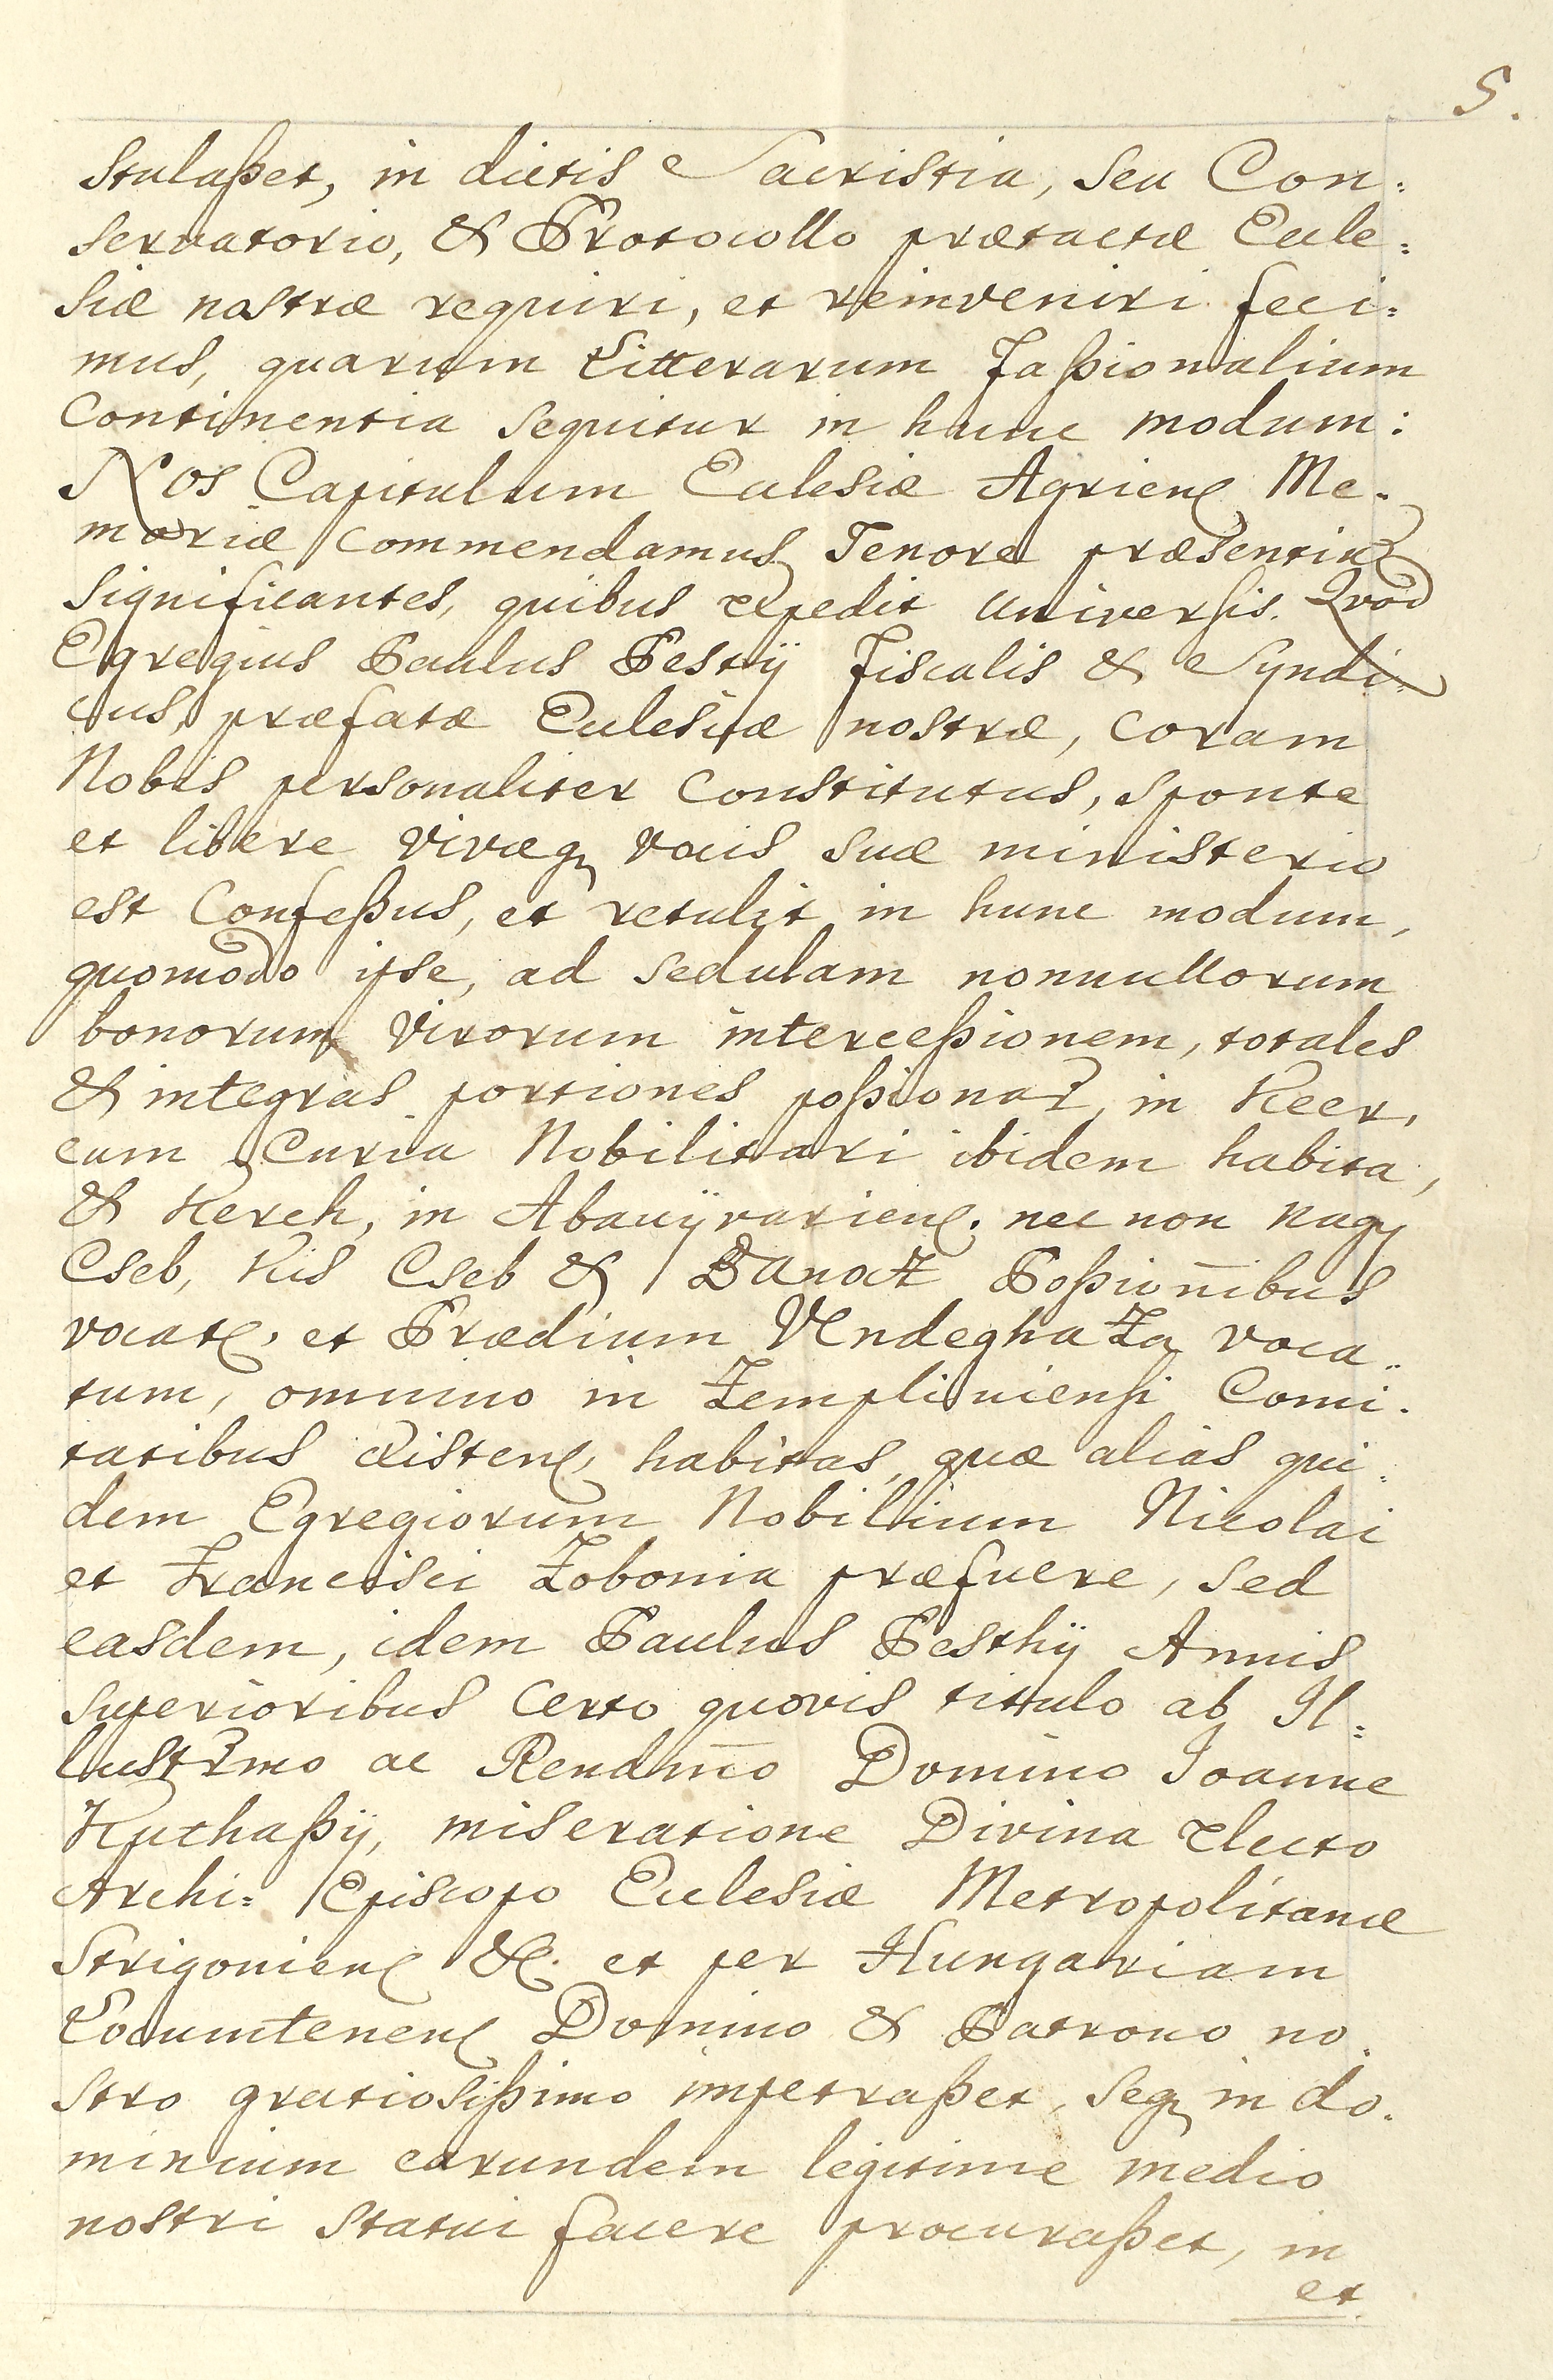 5.
stulaßet, in dictis Sacristia, seu Con:
servatorio, & Protocollo prætactæ Eccle:
siæ nostræ requiri, et reinveniri feci:
mus, quarum Litterarum Faßionalium
Continentia sequitur in hunc modum:
Nos Capitulum Ecclesiæ Agrien Me.
moriæ commendamus Tenore præsentiu
significantes, quibus expedit universis. Quod
Egregius Paulus Pestÿ Fiscalis & Syndi.
cus, præfatæ Ecclesiæ nostræ, coram
Nobis personaliter constitutus, sponte
et libere vivæq vocis suæ ministerio
est Confeßus, et retulit in hunc modum,
quomodo ipse, ad sedulam nonnullorum
bonorum Virorum interceßionem, totales
& integras portiones poßionar in Keer,
cum Curia Nobilitari ibidem habita,
& Kerch, in Abauÿvarien. nec non Nagy
Cseb, Kis Cseb & Banocz Poßionibus
vocat. et Prædium Vendeghaza voca..
tum, omnino in Zempliniensi Comi.
tatibus existen, habitas, quæ alias qui.
dem Egregiorum Nobilium Nicolai
et Francisci Zobonia præfuere, sed
easdem, idem Paulus Pesthÿ Annis
superioribus Certo quovis tittulo ab Il:
lustrmo ac Rendmo Domino Joanne
Kuthaßÿ, miseratione Divina electo
Archi: Episcopo Ecclesiæ Metropolitanæ
Strigonien &c. et per Hungariam
Locumtenen Domino & Patrono no.
stro gratiosißimo impetraßet, seq in do.
minium earundem legitime medio
nostri statui facere procuraßet, in
et